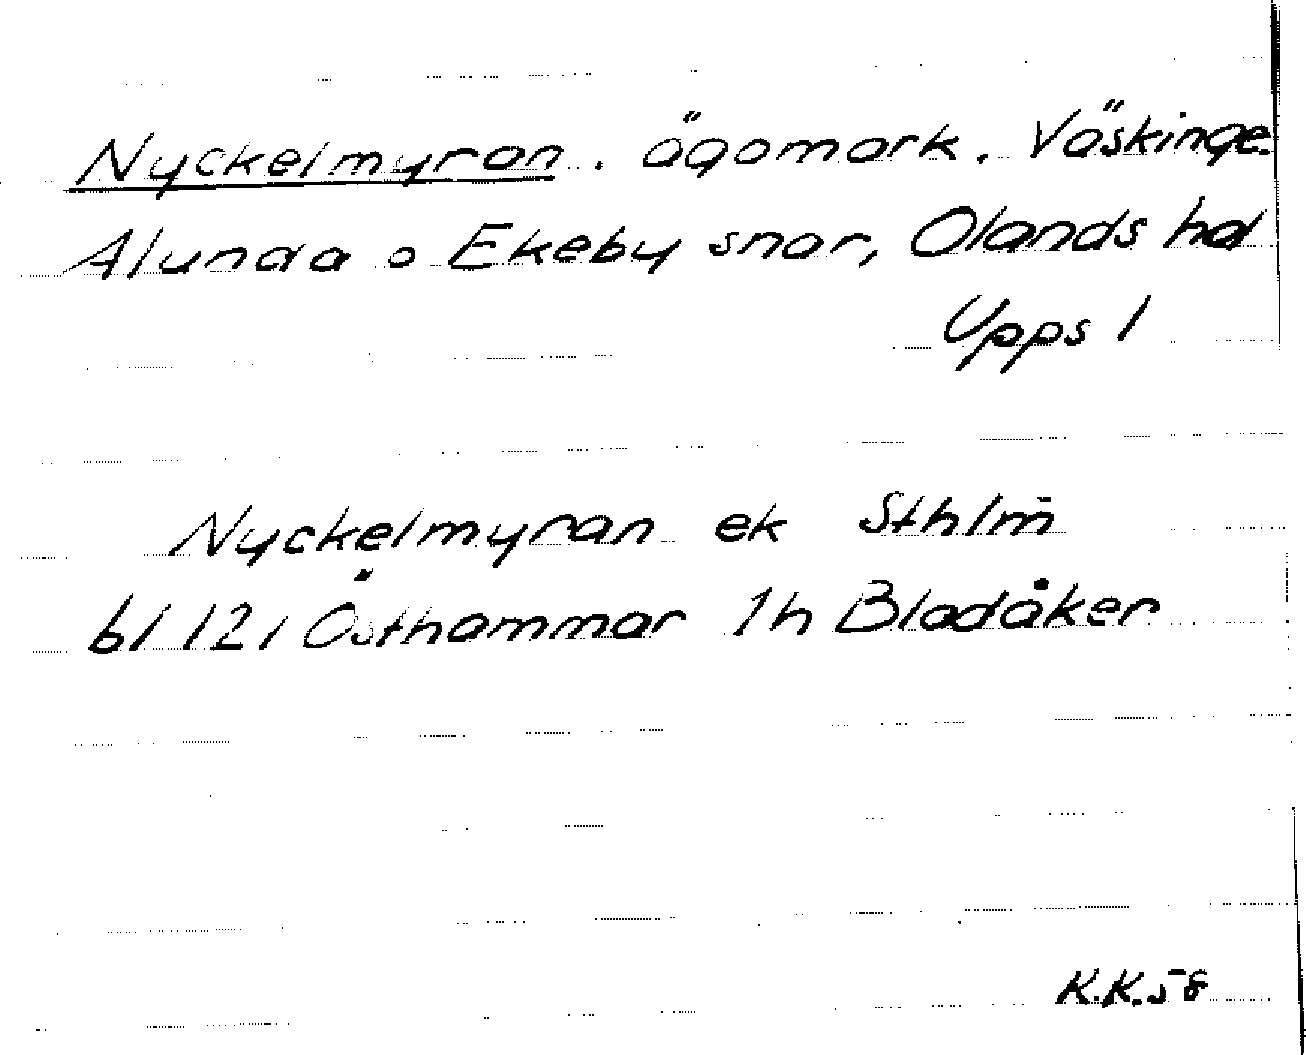 Nyckelmyran. ägomark. Väskinge.
Alunda o Ekeby snar, Olands hd
Upps l
Nyckelmyran ek Sthlm
bl 121 Östhammar 1h Bladåker
K.K.58